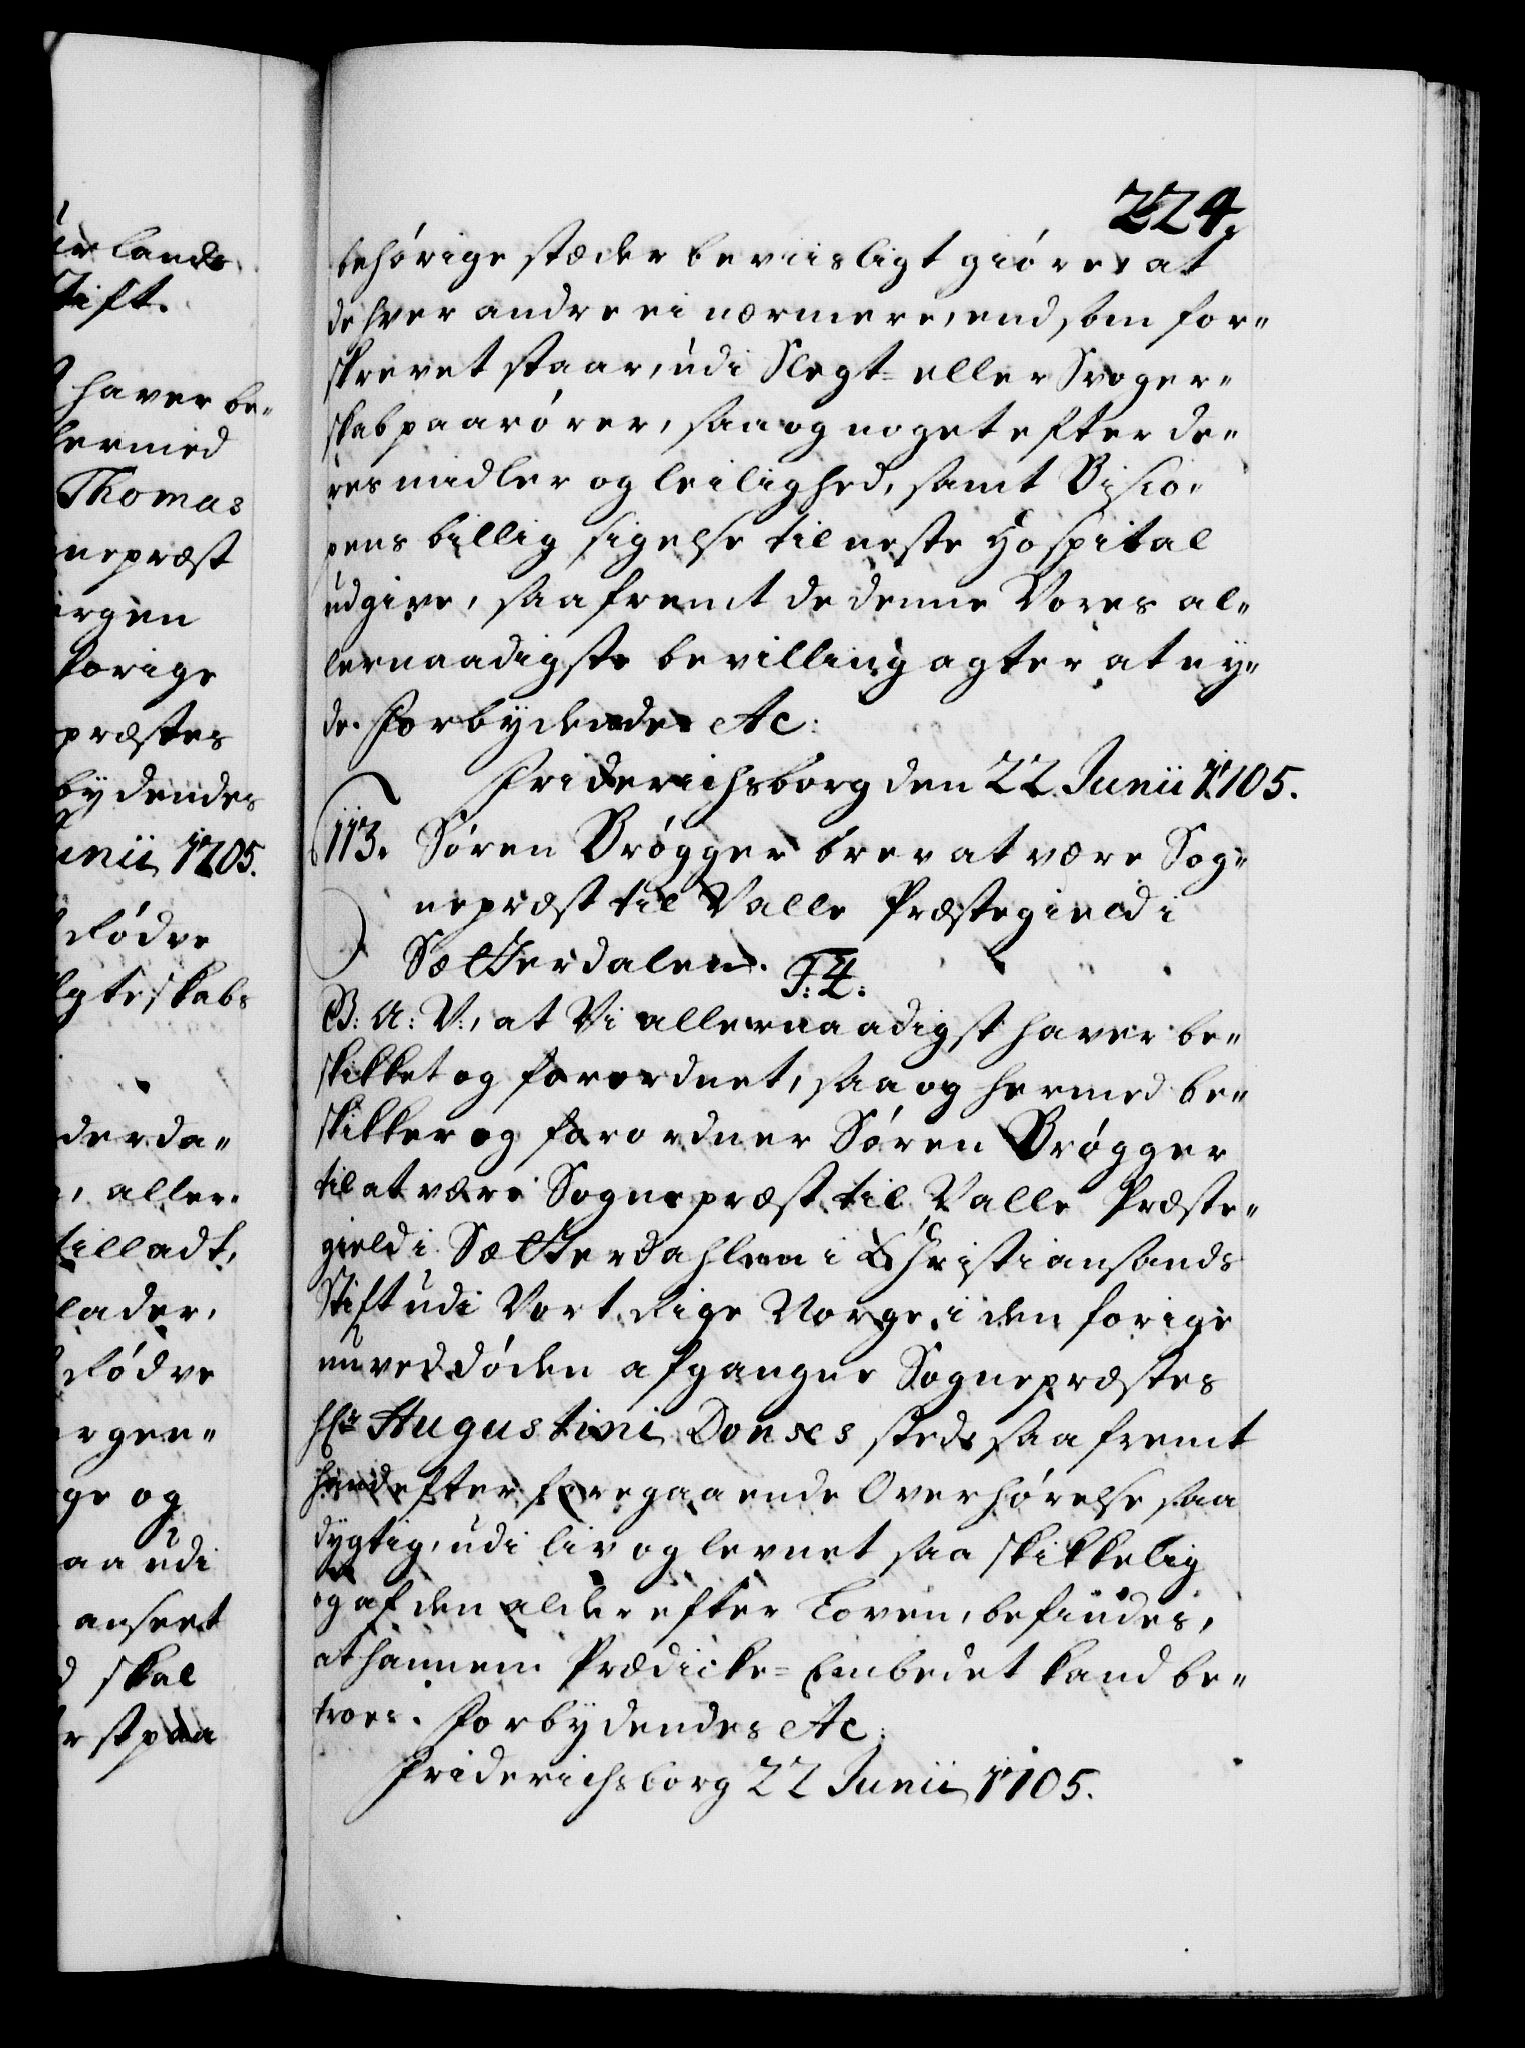 ür lands
Stift.
haver be„
hermed
Thomas
nepræst
ergen
forige
præstes
bydendes
unii 1705.
Rødve
Egteskabs
derda„
, aller„
tilladt,
lader,
Rødve
rgen„
ge og
aa udi
anseet
skal
r st paa
224.
behørige stæder beviisligt giøres at
de hver andre ei nærmere, end som for„
skrevet staar, udi Slegt= eller Svoger„
skab paarører, saa og noget efter de„
res midler og leilighed, samt Bisco„
pens billig sigelse til neste Hospital
udgive, saafremt de denne Vores al„
lernaadigste bevilling agter at ny„
de. Forbydende &c:
Friderichsborg den 22 Junii 1705.
113. Søren Brøgger brev at være Sog„
nepræst til Valle Præstegield i
Sætterdalen. T:4:
G: A: V:, at Vi allernaadigst haver be„
skikket og forordnet, saa og hermed be„
skikker og forordner Søren Brøgger
til at være Sognepræst til Valle Præste„
gield i Sætterdahlen i Christiansands
Stift udi Vort Rige Norge, i den forige
nu ved døden afgangne Sognepræstes
Hr. Augustini Donses sted, saa fremt
hand efter foregaaende Overhørelse saa
dygtig, udi liv og levnet saa skikkelig
og af den alder efter Loven, befindes,
at hannem Prædicke= Embedet kand be„
troes. Forbydendes &c:
Friderichsborg 22 Junii 1705.